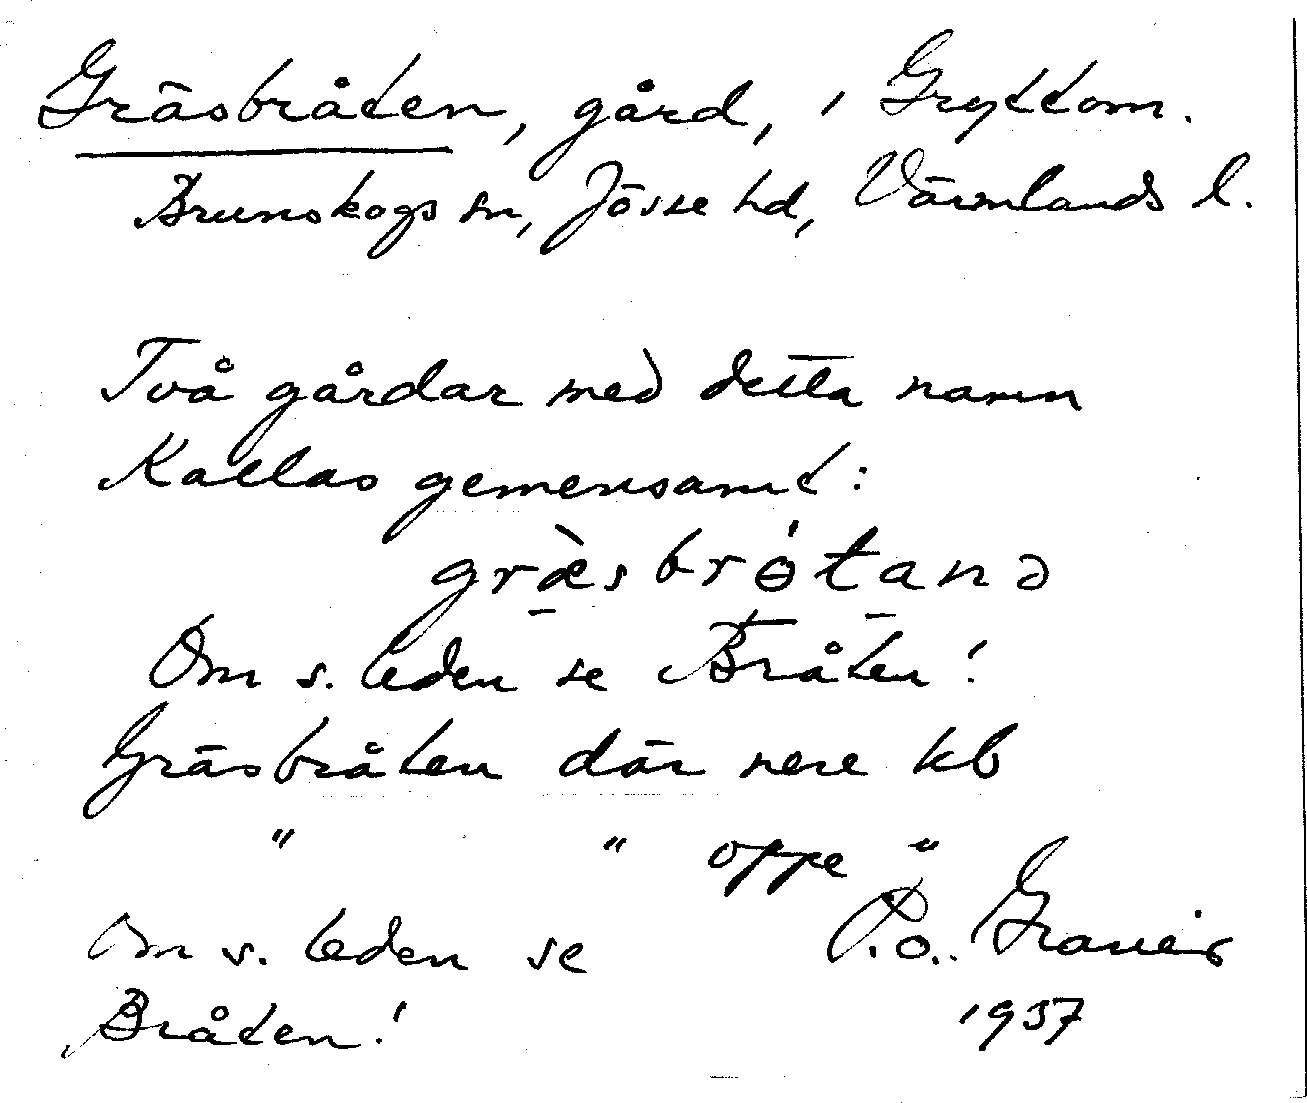 Gräsbråten, gård, i Gryttom.
Brunskogs sn, Jösse hd, Värmlands l.
Två gårdar med detta namn
Kallas gemensamt:
græ̀sbrótanə
Om s. leden se Bråten!
Gräsbråten där nere kb
" " oppe "
Om s. leden se
Bråten!
P.o..
1937